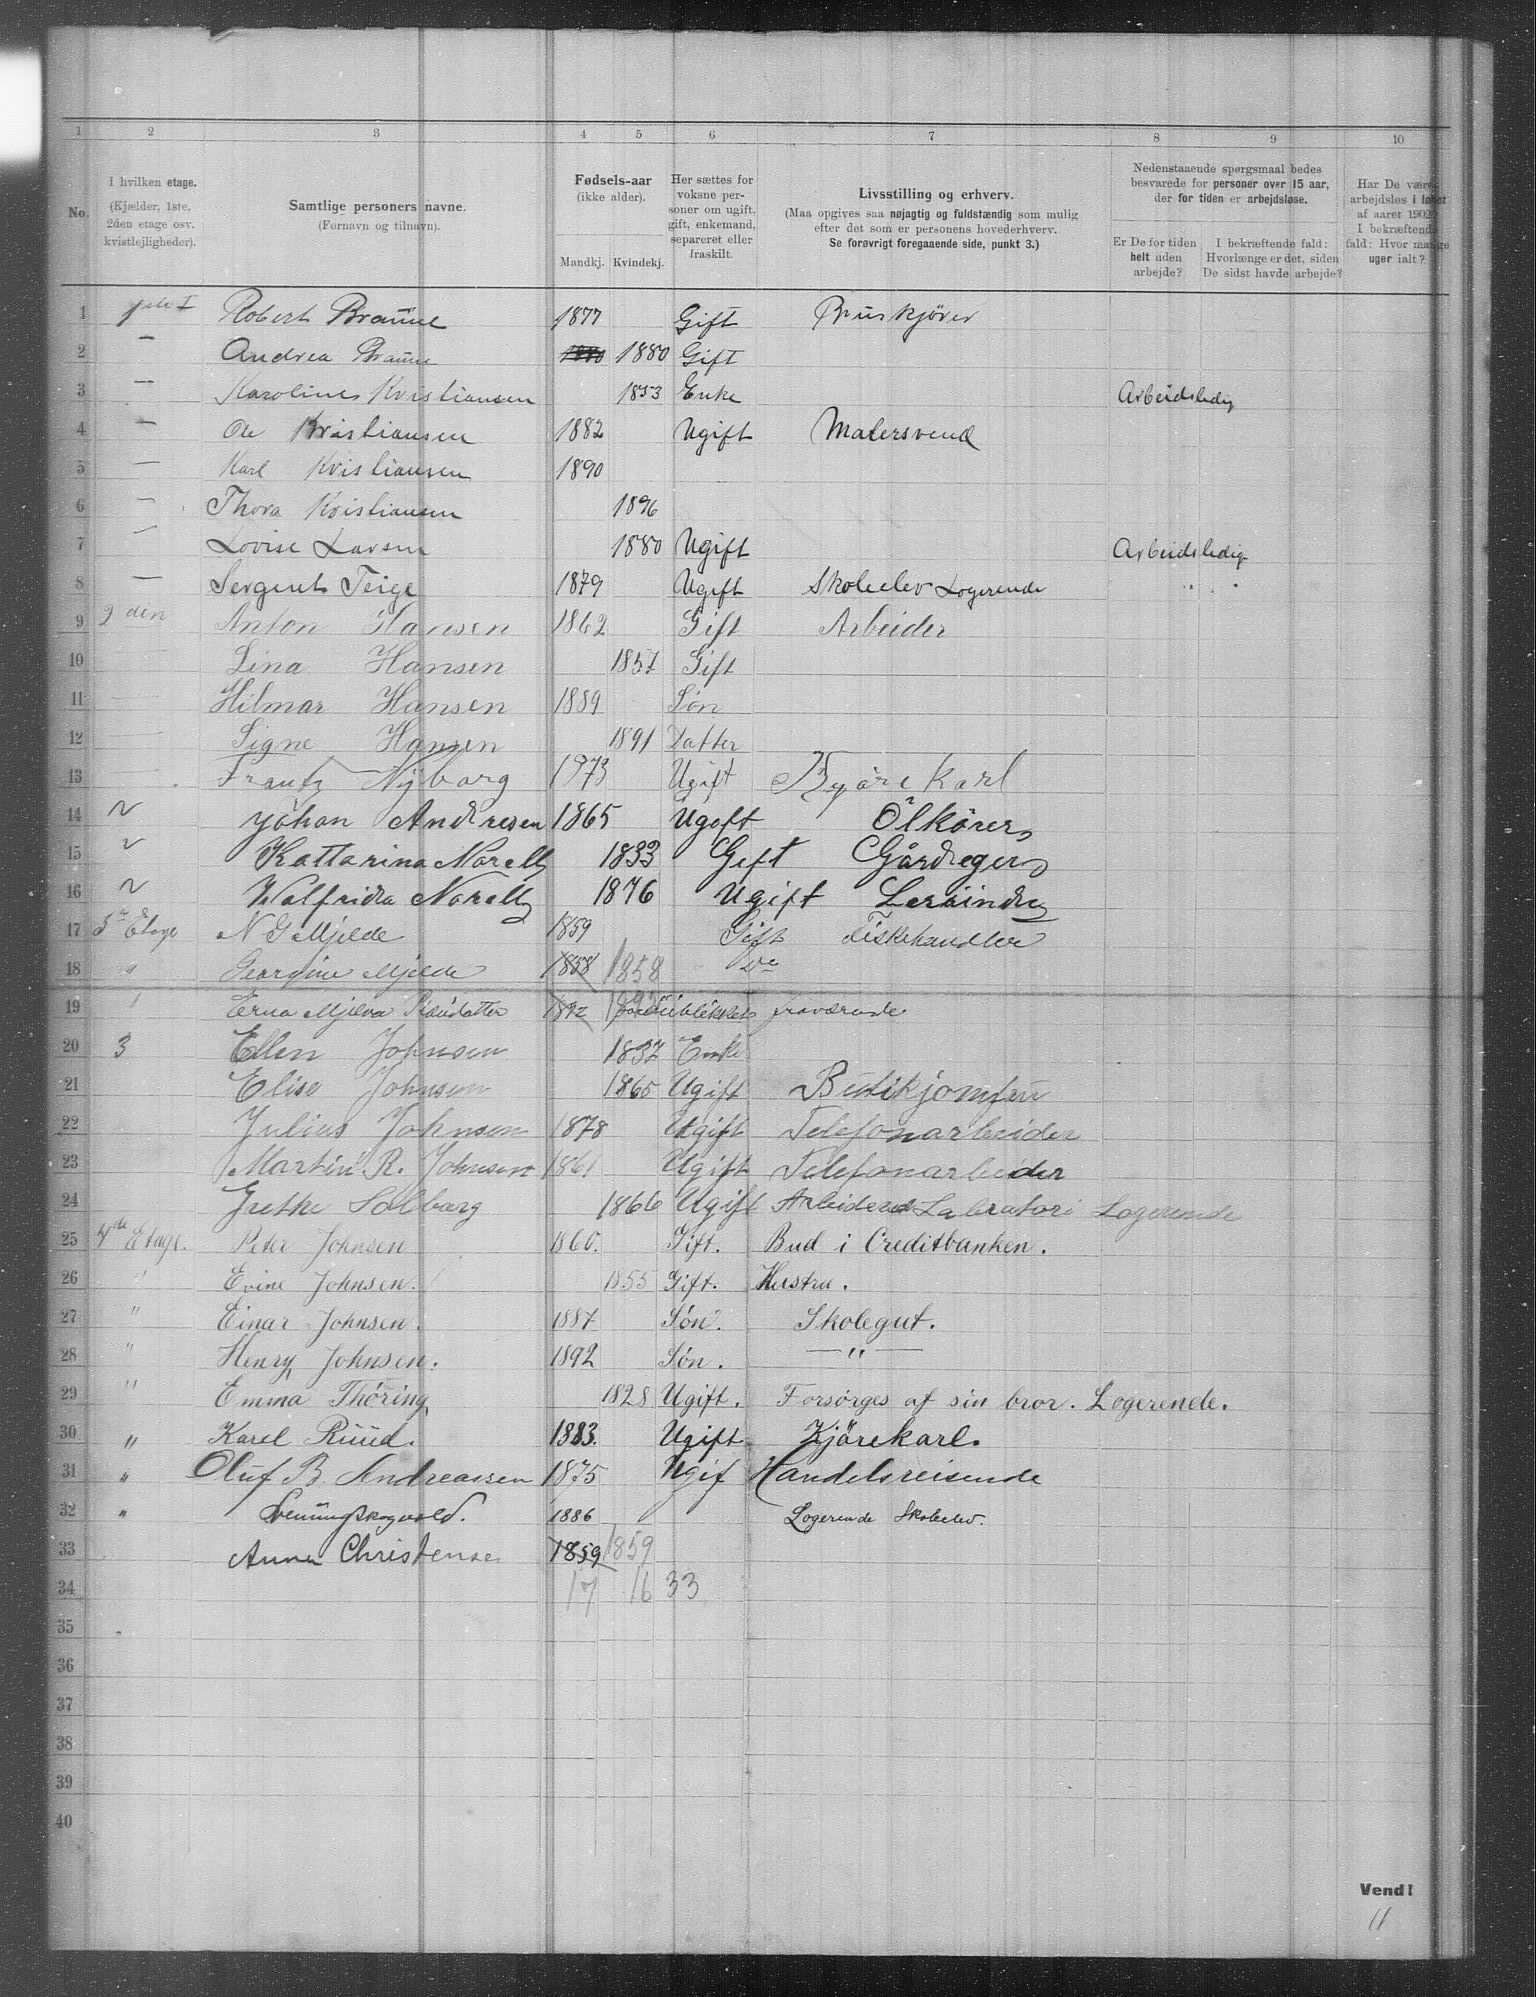 1 2 3 4 5 6 7 8 9 10
No.
I hvilken etage.
(Kjælder, 1ste,
2den etage osv.
kvistlejligheder).
Samtlige personers navne.
(Fornavn og tilnavn).
Fødsels-aar
(ikke alder).
Mandkj. Kvindekj.
Her sættes for
voksne per-
soner om ugift,
gift, enkemand,
separeret eller
fraskilt.
Livsstilling og erhverv.
(Maa opgives saa nøjagtig og fuldstændig som mulig
efter det som er personens hovederhverv.
Se forøvrigt foregaaende side, punkt 3.)
Nedenstaaende spørgsmaal bedes
besvarede for personer over 15 aar,
der for tiden er arbejdsløse.
Er De for tiden
helt uden
arbejde?
I bekræftende fald:
Hvorlænge er det, siden
De sidst havde arbejde?
Har De være
arbejdsløs i løbet
af aaret 1902?
I bekræftende
fald: Hvor mange
uger ialt?
1 1ste I Robert Braüne 1877 Gift Bruskjører
2 — Andrea Braüne 1880 1880 Gift
3 — Karoline Kristiansen 1853 Enke Arbeidsledig
4 — Ole Kristiansen 1882 Ugift Malersvend
5 — Karl Kristiansen 1890
6 — Thora Kristiansen 1896
7 — Lovise Larsen 1880 Ugift Arbeidsledig
8 — Sergent Teige 1879 Ugift Skoleelev Logerende " "
9 2 den Anton Hansen 1862 Gift Arbeider
10 — Lina Hansen 1857 Gift
11 — Hilmar Hansen 1889 Søn
12 — Signe Hansen 1891 Datter
13 — Frantz Nyborg 1973 Ugift Kjøre Karl
14 ~ Johan Andresen 1865 Ugoft Ölkörer
15 ~ Kattarina Norell 1833 Geft Gårdeger
16 ~ Walfrida Norell 1876 Ugift
17 3 Etage N G Mjelde 1859 Gift Fiskehandler
18 " Georgine Mjelde 1858 1858 Do
19 " Erna Mjelva 1892 1892 fraværende
20 3 Ellen Johnsen 1837 Enke
21 Elise Johnsen 1865 Ugift Butikjomfru
22 Julius Johnsen 1878 Ugift Telefonarbeider
23 Martin R. Johnsen 1861 Ugift Telefonarbeider
24 Grethe Solberg 1866 Ugift Arbeider Labratori Logerende
25 4de Etage. Peter Johnsen 1860. Gift. Bud i Creditbanken.
26 " Evine Johnsen. 1855 Gift. Hustru.
27 " Einar Johnsen. 1887 Søn. Skolegut.
28 " Henry Johnsen. 1892 Søn. — " —
29 " Emma Thöring 1828 Ugift. Forsörges af sin bror. Logerende.
30 " Karel Ruud. 1883. Ugift Kjörekarl.
31 " Oluf B. Andreassen 1875 Ugif Handelsreisende
32 " 1886 Logerende Skoleelev.
33 Anna Christense 1859 1859
34 17 16 33
35 "
36
37
38
39
40
Vend!
11